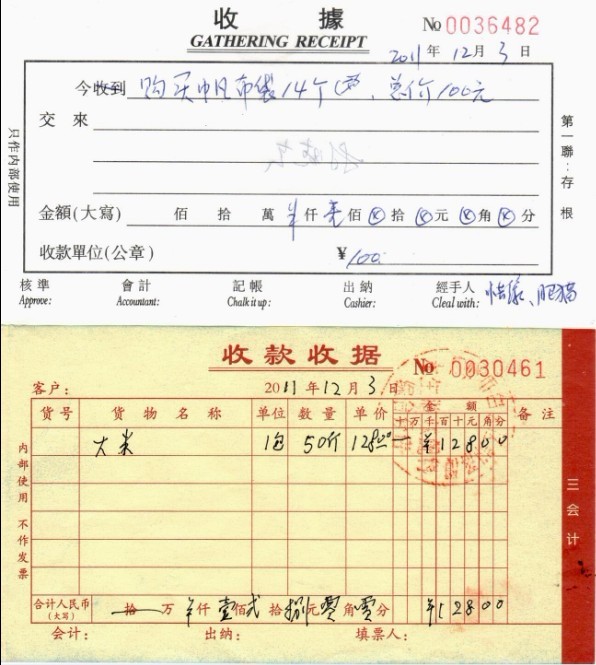 收據
GATHERING RECEIPT
No 0036482
2011 年 12 月 3 日
今收到 购买帆布袋14个, 总价100元
交來
只作内部使用
第一聯:存根
金額(大寫) 佰 拾 萬 仟 壹 佰 ⊗ 拾 ⊗ 元 ⊗ 角 ⊗ 分
收款單位(公章) ¥100.
核準 會計 記帳 出納 經手人
Approve: Accountant: Chalk it up: Cashier: Cleal with: 肥猫
收款收据
No 0030461
客户: 2011 年 12 月 3 日
货号 货物名称 单位 数量 单价 金额 备注
十 万 千 百 十 元 角 分
大米 1包 50斤 128.00 ¥12800
内部使用 不作发票
三会计
合计人民币(大写) 拾 万 ¥ 仟 壹 佰 贰 拾 捌 元 零 角 零 分 ¥12800
会计: 出纳: 填票人: